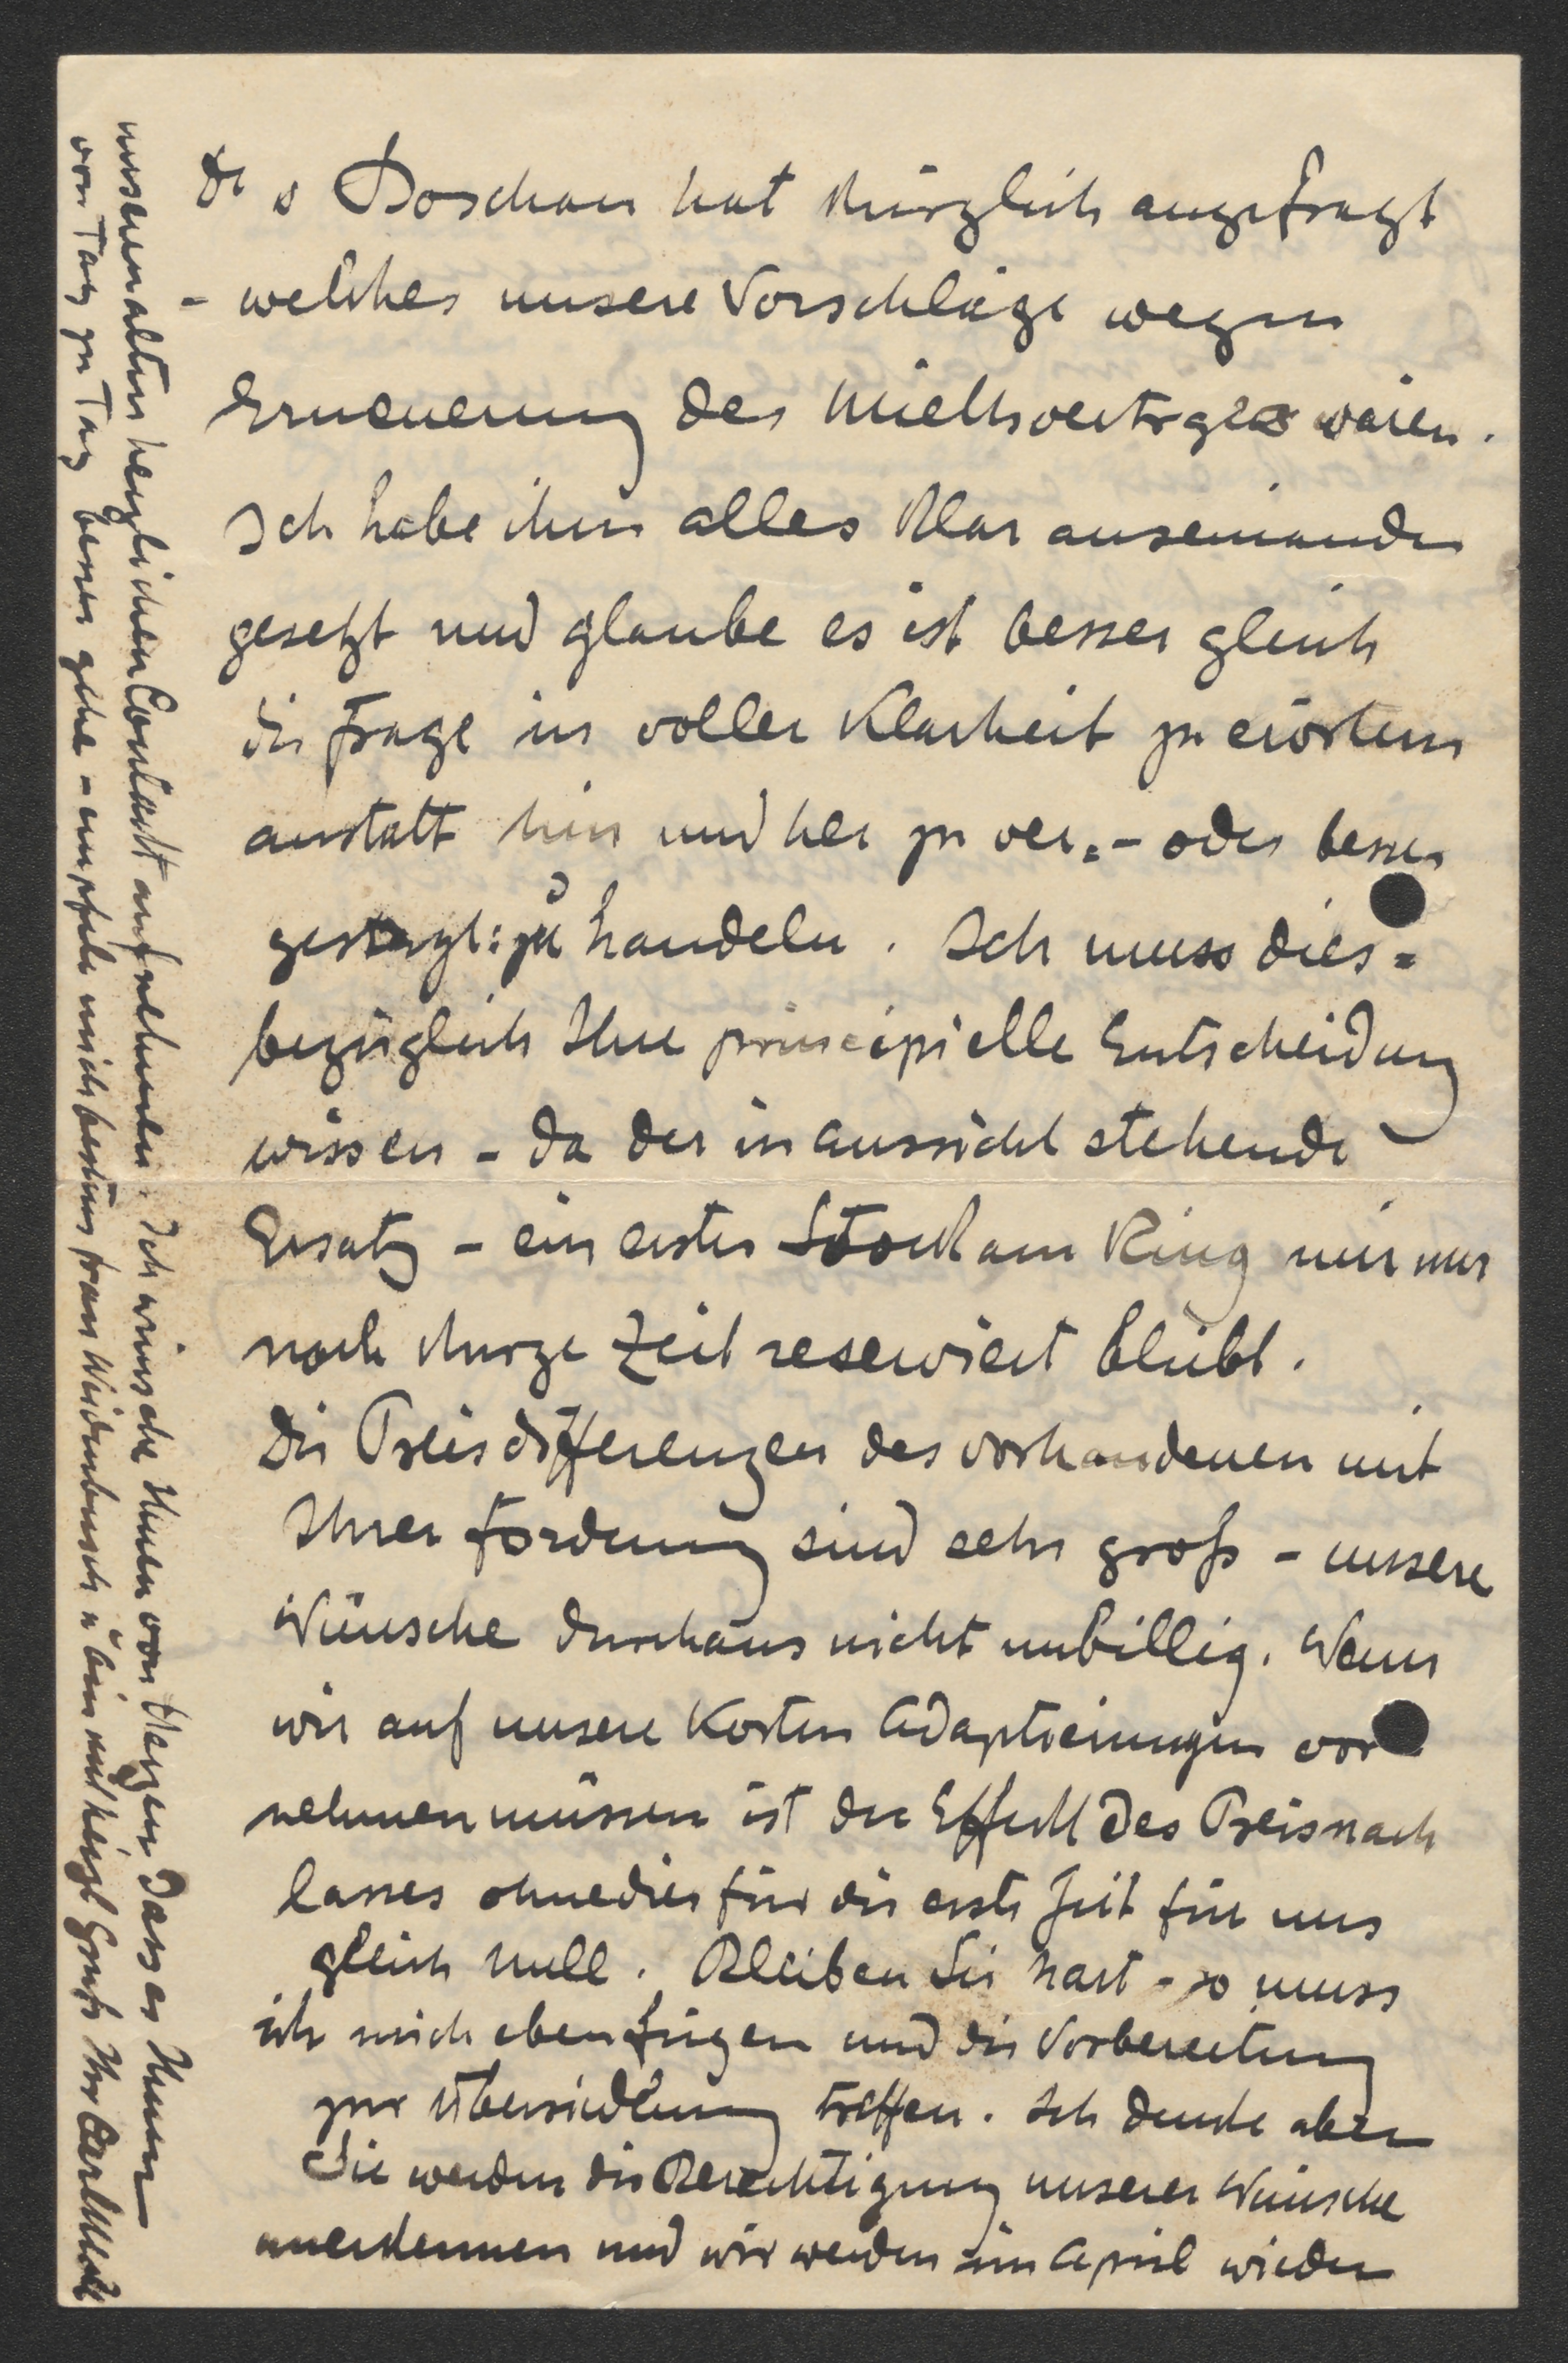 Dr Doschan hat kürzlich angefragt
- welches unsere Vorschläge wegen
Erneuerung des Miethsvertrges wären.
Ich habe ihm alles klar auseinander
gesetzt und glaube es ist besser gleich
die Frage in voller Klarheit zu erörtern
anstatt hin und her zu ver=- oder besser
gesagt: zu handeln. Ich muss dies=
bezüglich Ihre principielle Entscheidung
wissen - da der in aussicht stehende
Ersatz - ein erster Stock am Ring mir nur
noch kurze Zeit reserviert bleibt.
Die Preisdifferenzen des vorhandenen mit
Ihrer Forderung sind sehr groß - unsere
Wünsche durchaus nicht unbillig. Wenn
wir auf unsere Kosten Adaptierungen vor
nehmen müssen ist der Effekt des Preisnach
lasses ohnedies für die erste Zeit für uns
gleich null. Bleiben Sie hart - so muss
ich mich eben fügen und die Vorbereitung
zur Übersiedlung treffen. Ich denke aber
Sie werden die Berechtigung unserer Wünsche
anerkennen und wir werden im April wieder
unseren alten herzlichen Contact aufnehmen. Ich wünsche Ihnen von Herzen dass es Ihnen
von Tag zu Tag besser gehe - empfehle mich bestens Frau Weidenbusch u bin mit herzl Gruß Ihr Carl Moll